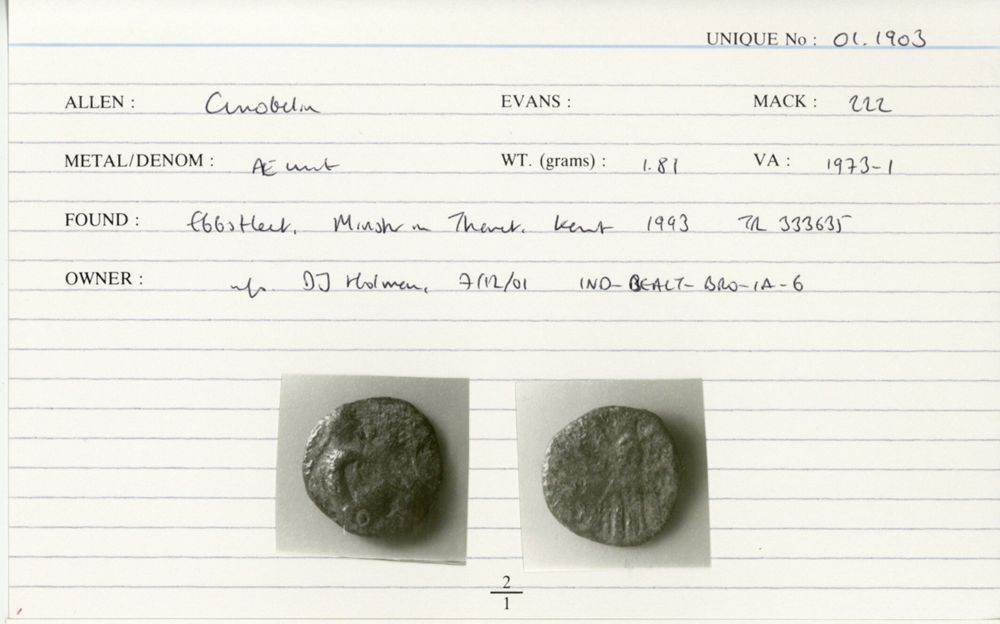 UNIQUE No : 01.1903
ALLEN : Cunobelin EVANS : MACK : 222
METAL/DENOM : AE unit WT. (grams) : 1.81 VA : 1973-1
FOUND : Ebbsfleet, Minster in Thanet, Kent 1993 TR 333635
OWNER : DJ Holman, 7/12/01 IND-BEALT-BRO-IA-6
2
1